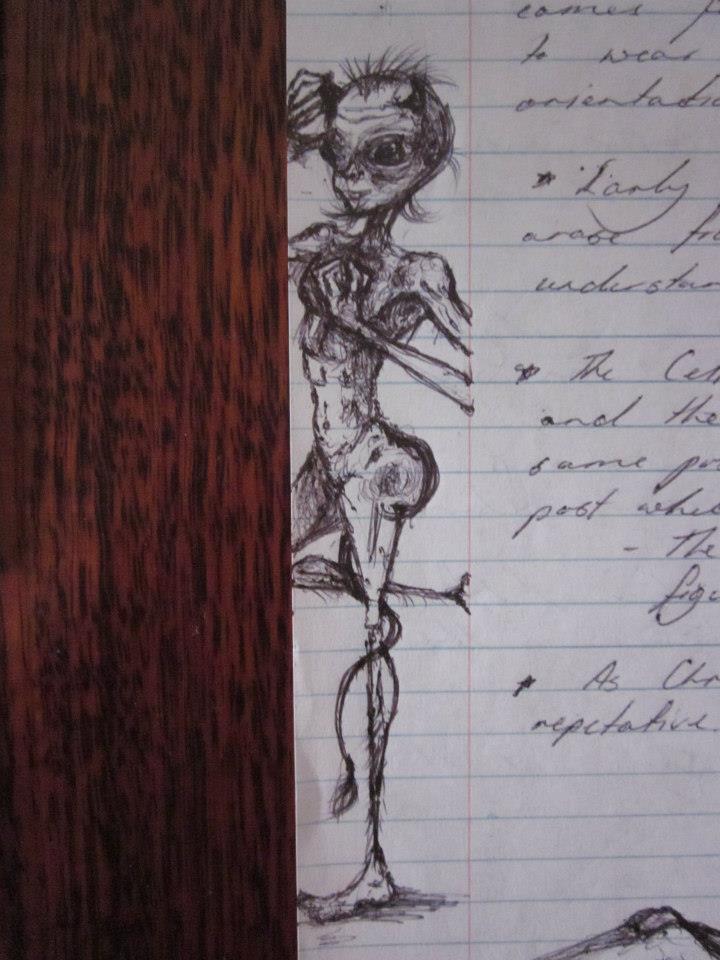 comes f
to wear
orientatio
* Early
arose fr
understan
* The Cel
and the
same po
post whe
- The
figu
* As Chr
repetative.